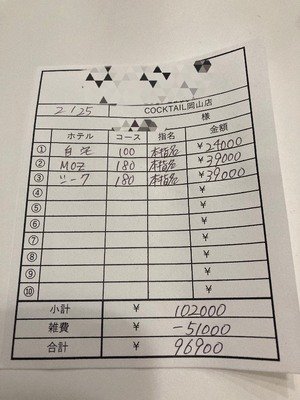 COCKTAIL岡山店
2/25
様
ホテル コース 指名 金額
① 自宅 100 本指名 ¥24000
② MOZ 180 本指名 ¥39000
③ シーク 180 本指名 ¥39000
④ ¥
⑤ ¥
⑥ ¥
⑦ ¥
⑧ ¥
⑨ ¥
⑩ ¥
小計 ¥ 102000
雑費 ¥ -51000
合計 ¥ 96900